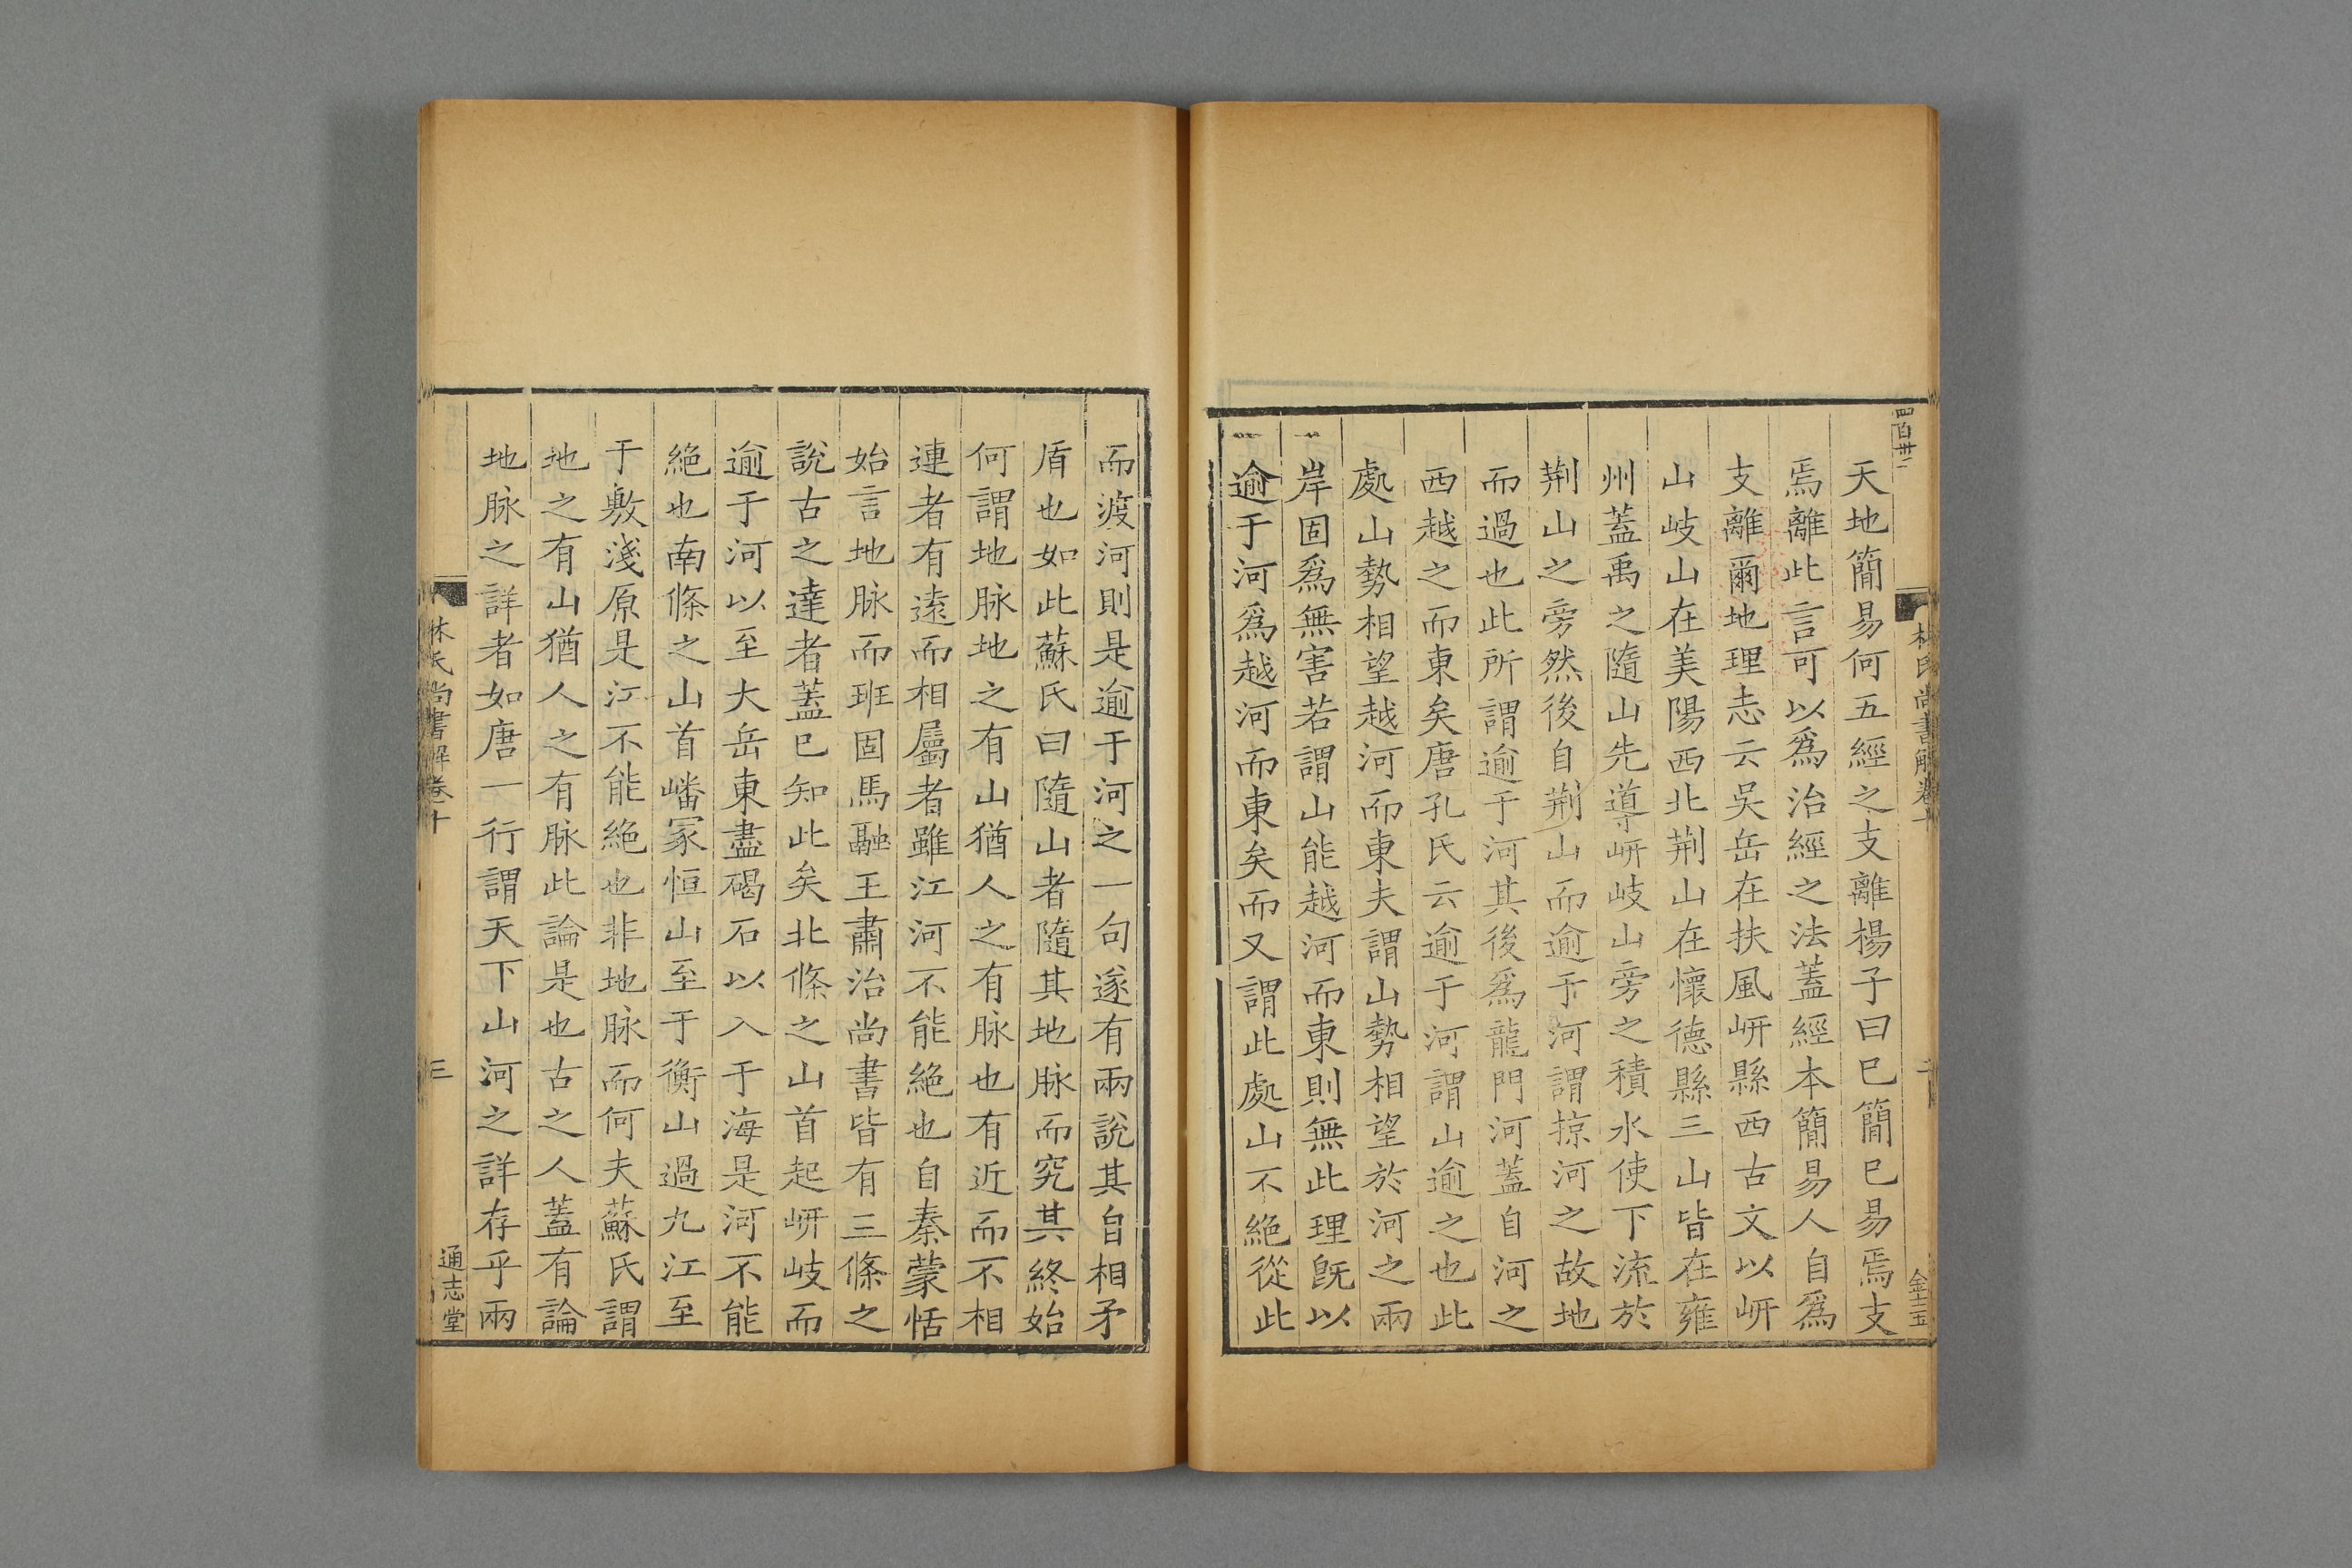 天地簡易何五經之支離楊子曰已簡已易焉支
焉離此言可以爲治經之法蓋經本簡易人自爲
支離爾地理志云吳岳在扶風岍縣西古文以岍
山岐山在美陽西北荆山在懷德縣三山皆在雍
州蓋禹之隨山先導岍岐山旁之積水使下流於
荆山之旁然後自荆山而逾于河謂掠河之故地
而過也此所謂逾于河其後爲龍門河蓋自河之
西越之而東矣唐孔氏云逾于河謂山逾之也此
處山勢相望越河而東夫謂山勢相望於河之兩
岸固爲無害若謂山能越河而東則無此理旣以
逾于河爲越河而東矣而又謂此處山不絕從此
而渡河則是逾于河之一句遂有兩說其自相矛
盾也如此蘇氏曰隨山者隨其地脉而究其終始
何謂地脉地之有山猶人之有脉也有近而不相
連者有遠而相屬者雖江河不能絕也自秦蒙恬
始言地脉而班固馬融王肅治尚書皆有三條之
說古之達者蓋已知此矣北條之山首起岍岐而
逾于河以至大岳東盡碣石以入于海是河不能
絕也南條之山首嶓冢恒山至于衡山過九江至
于敷淺原是江不能絕也非地脉而何夫蘇氏謂
地之有山猶人之有脉此論是也古之人蓋有論
地脉之詳者如唐一行謂天下山河之詳存乎兩
林氏尚書解卷十
三
通志堂